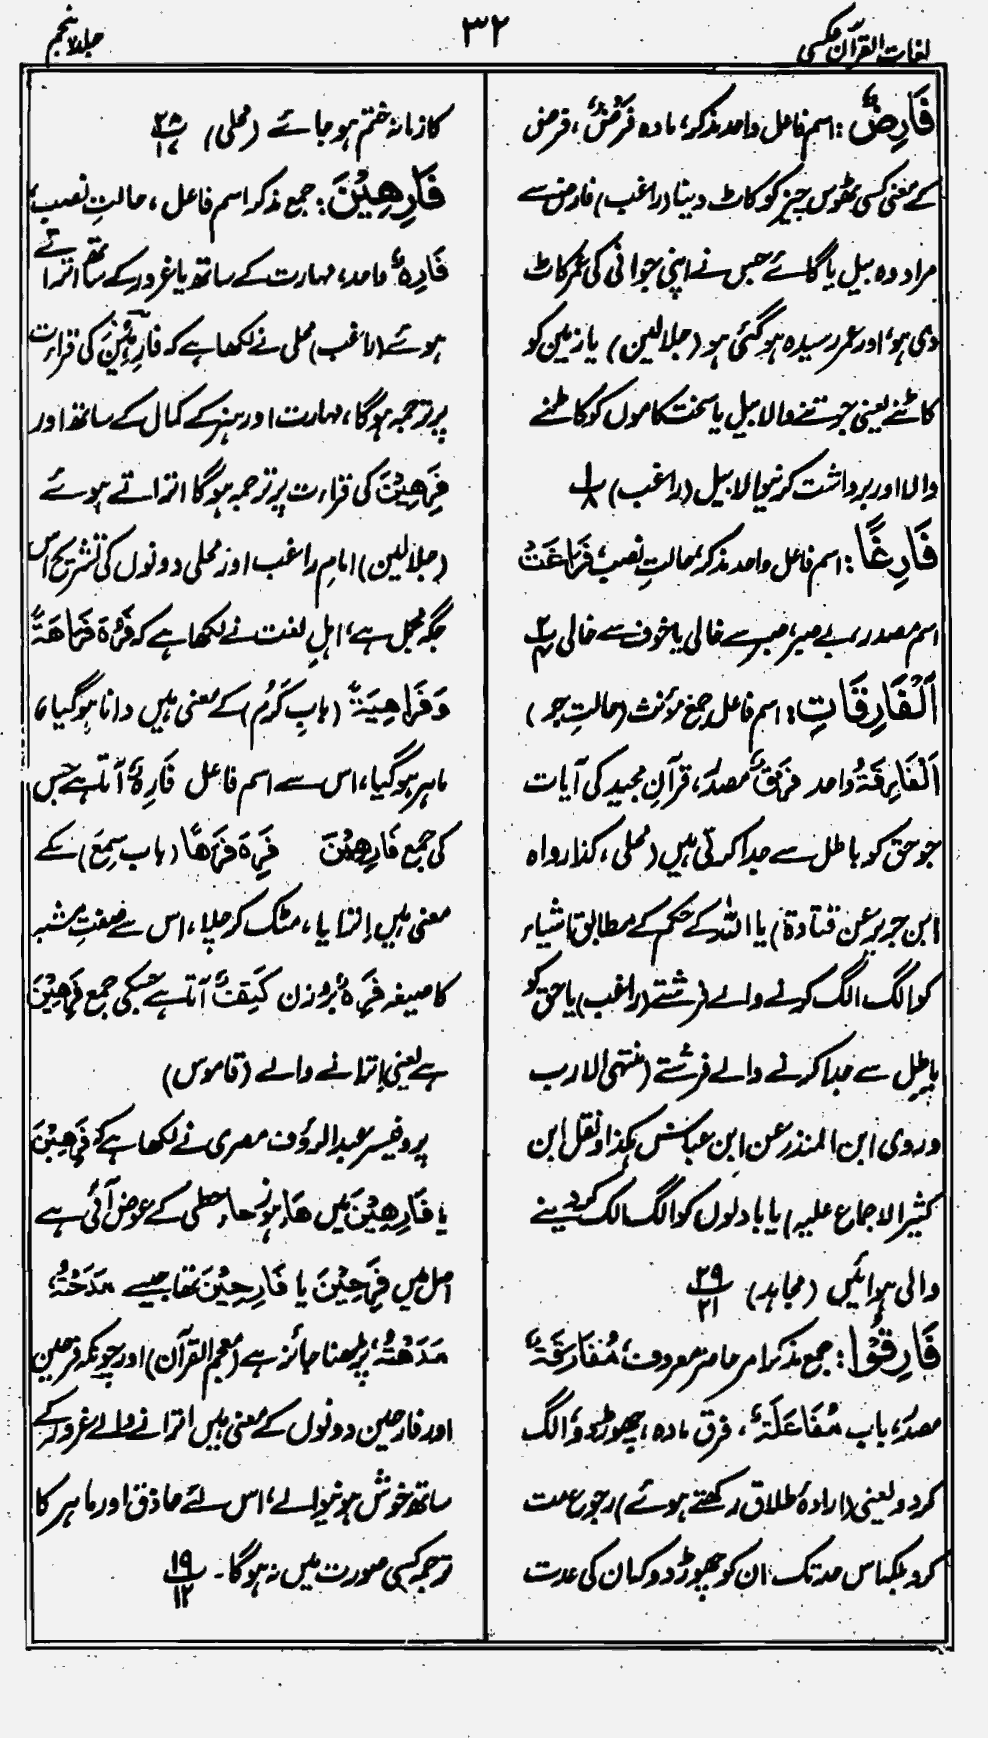 لغات القرآن عکسی
۳۲
جلد پنجم
فَارِضٌ: اسم فاعل واحد مذکر، مادہ فَرْضٌ، فرض
کے معنی کسی ٹھوس چیز کو کاٹ دینا (راغب) فارض سے
مراد وہ بیل یا گائے جس نے اپنی جوانی کی عمر کاٹ
دی ہو، اور عمر رسیدہ ہو گئی ہو (جلالین) یا زمین کو
کاٹنے یعنی جوتنے والا بیل یا سخت کاموں کو کاٹنے
والا اور برداشت کرنیوالا بیل (راغب) ۱/۸
فَارِغًا: اسم فاعل واحد مذکر بحالتِ نصب، فَرَاغَتٌ
اسم مصدر، بے صبر، صبر سے خالی یا خوف سے خالی ۲۰/۴
اَلْفَارِقَاتِ: اسم فاعل جمع مؤنث (حالتِ جر)
اَلْفَارِقَةُ واحد فَرْقٌ مصدر، قرآنِ مجید کی آیات
جو حق کو باطل سے جدا کرتی ہیں (محلی، کذا رواہ
ابن جریر عن قتادۃ) یا اللہ کے حکم کے مطابق اشیاء
کو الگ الگ کرنے والے فرشتے (راغب) یا حق کو
باطل سے جدا کرنے والے فرشتے (منتہی الارب
وروی ابن المنذر عن ابن عباس ہکذا ونقل ابن
کثیر الاجماع علیہ) یا بادلوں کو الگ الگ کر دینے
والی ہوائیں (مجاہد) ۲۹/۲۱
فَارِقُوْا: جمع مذکر امر حاضر معروف، مُفَارَقَةٌ
مصدر، باب مُفَاعَلَةٌ، فرق مادہ، چھوڑ دو، الگ
کر دو، یعنی (ارادۂ طلاق رکھتے ہوئے) رجوع مت
کرو بلکہ اس حد تک ان کو چھوڑ دو کہ ان کی عدت
کا زمانہ ختم ہو جائے (محلی) ۲۸/۱۷
فَارِهِيْنَ: جمع مذکر اسم فاعل، حالتِ نصب،
فَارِهٌ واحد، مہارت کے ساتھ یا غرور کے ساتھ اتراتے
ہوئے (راغب) محلی نے لکھا ہے کہ فَارِهِيْنَ کی قراءت
پر ترجمہ ہوگا، مہارت اور ہنر کے کمال کے ساتھ اور
فَرِهِيْنَ کی قراءت پر ترجمہ ہوگا اتراتے ہوئے
(جلالین) امام راغب اور محلی دونوں کی تشریح اس
جگہ مجمل ہے، اہلِ لغت نے لکھا ہے کہ فَرُهَ فَرَاهَةً
وَفَرَاهِيَةً (بابِ کَرُمَ) کے معنی ہیں دانا ہو گیا،
ماہر ہو گیا، اس سے اسم فاعل فَارِهٌ آتا ہے جس
کی جمع فَارِهِيْنَ فَرِهَ فَرَهًا (باب سَمِعَ) کے
معنی ہیں اِترایا، مٹک کر چلا، اس سے صفتِ مشبہ
کا صیغہ فَرِهٌ بروزن کَتِفٌ آتا ہے جسکی جمع فَرِهِيْنَ
ہے یعنی اِترانے والے (قاموس)
پروفیسر عبدالرؤف مصری نے لکھا ہے کہ فَرِهِيْنَ
یا فَارِهِيْنَ میں ھَاء ہوز حاءِ حطی کے عوض آئی ہے
اصل میں فَرِحِيْنَ یا فَارِحِيْنَ تھا جیسے مَدَحْتُهٗ،
مَدَهْتُهٗ، پڑھنا جائز ہے (معجم القرآن) اور چونکہ فرحین
اور فارحین دونوں کے معنی ہیں اترانے والے غرور کے
ساتھ خوش ہونیوالے، اس لئے حاذق اور ماہر کا
ترجمہ کسی صورت میں نہ ہوگا۔ ۱۹/۱۲